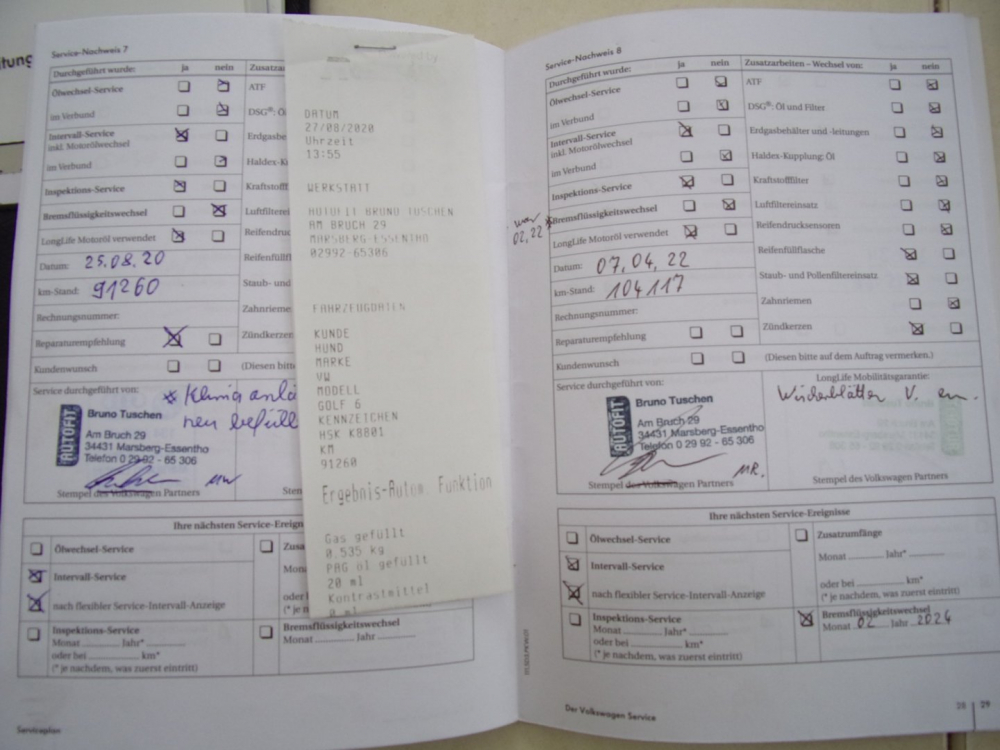 Service-Nachweis 7
Durchgeführt wurde: ja nein
Ölwechsel-Service
im Verbund
Intervall-Service
inkl. Motorölwechsel
im Verbund
Inspektions-Service
Bremsflüssigkeitswechsel
LongLife Motoröl verwendet
Datum: 25.08.20
km-Stand: 91260
Rechnungsnummer:
Reparaturempfehlung
Kundenwunsch
Zusatzar
ATF
DSG®: Öl
Erdgasbe
Haldex-Ku
Kraftstofff
Luftfilterei
Reifendruc
Reifenfüll
Staub- und
Zahnrieme
Zündkerzen
(Diesen bitte
Service durchgeführt von:
* Klimaanla
neu befüll
AUTOFIT
Bruno Tuschen
Am Bruch 29
34431 Marsberg-Essentho
Telefon 0 29 92 - 65 306
Stempel des Volkswagen Partners
Stem
Ihre nächsten Service-Ereign
Ölwechsel-Service
Intervall-Service
nach flexibler Service-Intervall-Anzeige
Inspektions-Service
Monat Jahr*
oder bei km*
(* je nachdem, was zuerst eintritt)
Zusa
Mona
oder b
(* je n
Bremsflüssigkeitswechsel
Monat Jahr
Serviceplan
DATUM
27/08/2020
Uhrzeit
13:55
WERKSTATT
AUTOFIT BRUNO TUSCHEN
AM BRUCH 29
MARSBERG-ESSENTHO
02992-65306
FAHRZEUGDATEN
KUNDE
HUND
MARKE
VW
MODELL
GOLF 6
KENNZEICHEN
HSK K8801
KM
91260
Ergebnis-Autom. Funktion
Gas gefüllt
0.535 kg
PAG öl gefüllt
20 ml
Kontrastmittel
0 ml
Service-Nachweis 8
Durchgeführt wurde: ja nein
Ölwechsel-Service
im Verbund
Intervall-Service
inkl. Motorölwechsel
im Verbund
Inspektions-Service
Bremsflüssigkeitswechsel
02,22
LongLife Motoröl verwendet
Datum: 07,04,22
km-Stand: 104117
Rechnungsnummer:
Reparaturempfehlung
Kundenwunsch
Zusatzarbeiten – Wechsel von: ja nein
ATF
DSG®: Öl und Filter
Erdgasbehälter und -leitungen
Haldex-Kupplung: Öl
Kraftstofffilter
Luftfiltereinsatz
Reifendrucksensoren
Reifenfüllflasche
Staub- und Pollenfiltereinsatz
Zahnriemen
Zündkerzen
(Diesen bitte auf dem Auftrag vermerken.)
Service durchgeführt von:
AUTOFIT
Bruno Tuschen
Am Bruch 29
34431 Marsberg-Essentho
Telefon 0 29 92 - 65 306
MR.
Stempel des Volkswagen Partners
LongLife Mobilitätsgarantie:
Wischerblätter V. ern.
Stempel des Volkswagen Partners
Ihre nächsten Service-Ereignisse
Ölwechsel-Service
Intervall-Service
nach flexibler Service-Intervall-Anzeige
Inspektions-Service
Monat Jahr*
oder bei km*
(* je nachdem, was zuerst eintritt)
Zusatzumfänge
Monat Jahr*
oder bei km*
(* je nachdem, was zuerst eintritt)
Bremsflüssigkeitswechsel
Monat 02 Jahr 2024
Der Volkswagen Service
28 29